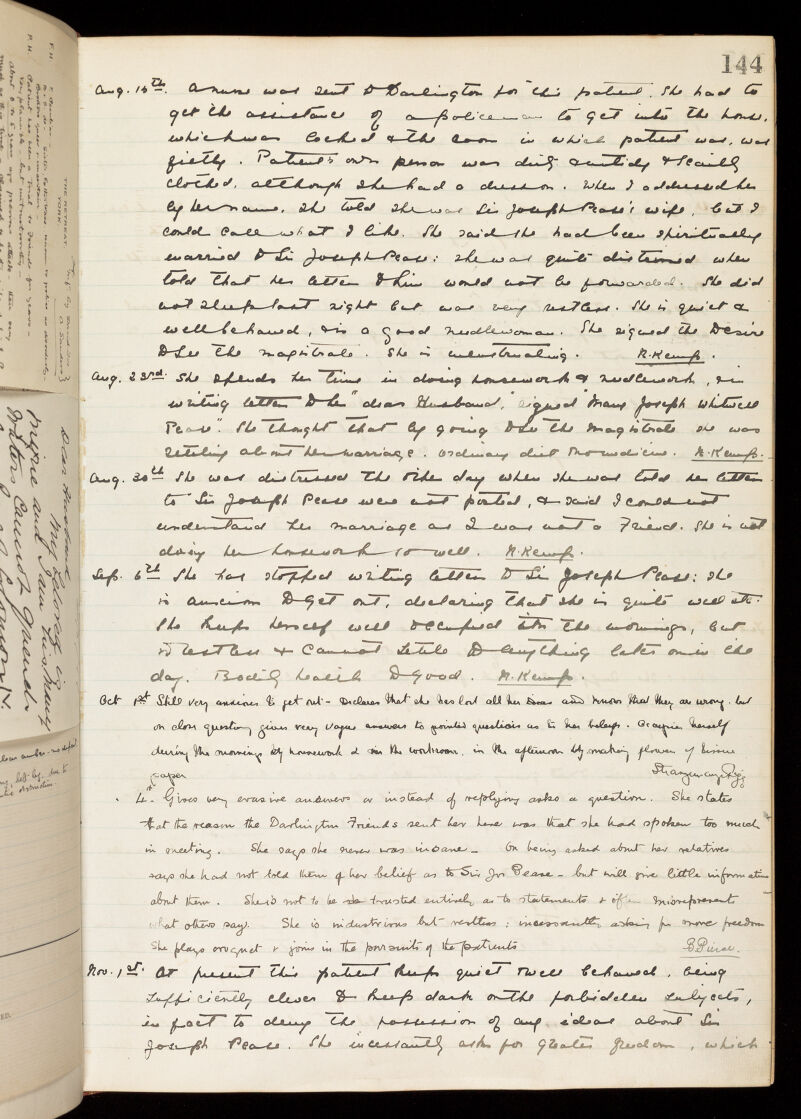 144
Aug. 15th. A nurse was sent to Darlington for this patient. She had to
get the assistance of a policeman to get into the house,
which was locked & the room in which patient was, was
filthy. Patient's own person was dirty & untidy & scantily
clothed, although she had a dress on. When I addressed her
by her name, she told she was Sir Joseph Pease's wife, but I
could call what I like. She said she had been spiritually
married to Sir Joseph Pease: she was quite distressed when
told that her letter to him would not be forwarded. She did
not sleep last night but was very restless. She is quiet &
well behaved, & is a good needlewoman. She signed the Desire
to See the magistrate. She is menstruating. N. Kemp.
Aug. 23rd. She spends her time in doing housework & needlework, & in
writing letters to her "dear Husband," signed "Mary Joseph Whitwell
Pease". She thought that by going to see the magistrate she was
settling about her marriage. Ordinary diet. No medicine. N. Kemp.
Aug. 30th She was distressed the other day when she was told her letters
to Sir Joseph Pease were not posted, & said I could not
understand her marriage as I was not a Friend. She is not
doing her housework so well. N. Kemp.
Sep. 6th She has stopped writing letters to Sir Joseph Pease: she
is anxious to get out, declaring that she is quite well etc.
She keeps herself well occupied in the mornings, but
is restless & cannot settle to anything later on in the
day. Bodily health is good. N. Kemp.
Oct 1st Still very anxious to get out - Declares that she has lost all her ideas and knows that they are wrong, but
on close questioning gives very vague answers to pointed questions as to her beliefs. Occupies herself
during the morning by housework & in the workroom, in the afternoon by making flowers of tissue
paper
4th. Gives very evasive answers or instead of replying asks a question. She states
that the reason the Darlington Friends sent her here was that she had spoken too much
in meeting. She says she never was insane - On being asked about her relatives
says she had not told them of her belief as to Sir Jos Pease - but will give little information
about them. She is not to be trusted entirely as to statements & often misrepresents
what others say. She is industrious but restless: incessantly asking for more freedom
She plays croquet & joins in the pursuits of the patients B. Pierce.
Nov. 1st. At present this patient keeps quiet & well behaved, being
sufficiently clever to keep dark on the forbidden subjects,
in fact to deny the possession of any ideas about Sir
Joseph Pease. She incessantly asks for greater freedom, which
THE RETREAT,
YORK.
Dear Husband
My beloved is
mine and I am his. Many
Waters cannot quench